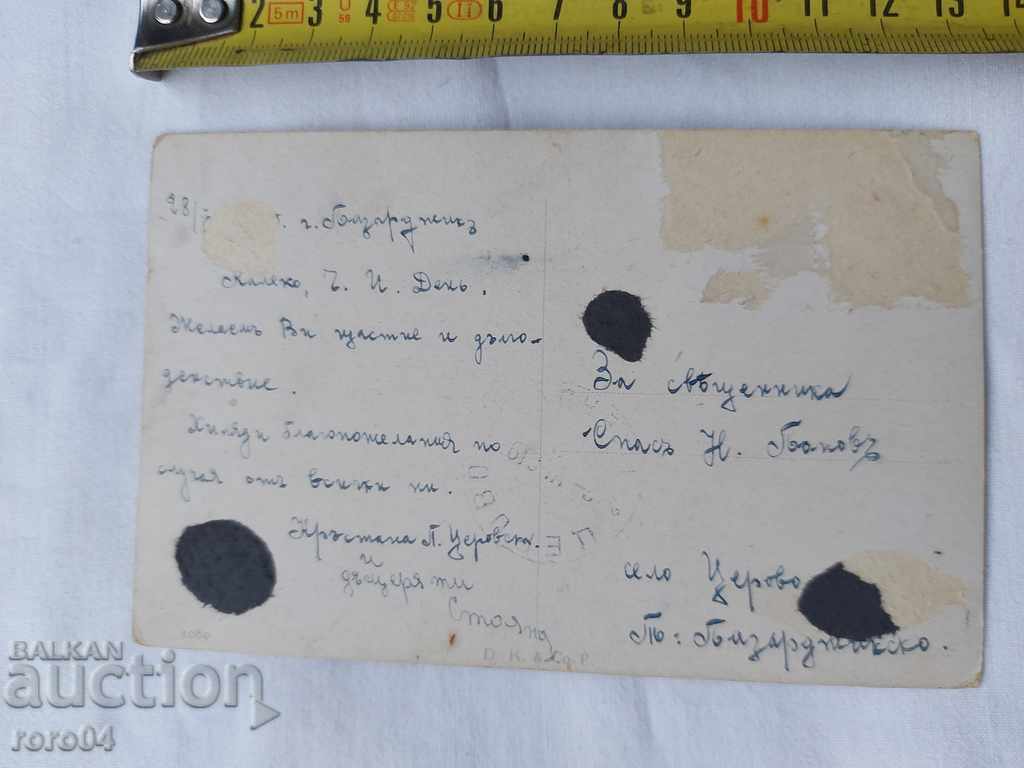 28/ г. Т. Пазарджикъ
Калеко, Ч. И. День.
Желаемъ Ви щастие и дълго-
денствие.
Хиляди благопожелания по
случая отъ всички ни.
Кръстана П. Церовска.
и
дъщеря ти
Стояна
За свещенника
Спасъ Н. Боновъ
село Церово
Т. Пазарджикско.
D. K. & Co. P.
BALKAN
auction
roro04
2 3 4 5 6 7 8 9 10 11 12 13 14
5m
II